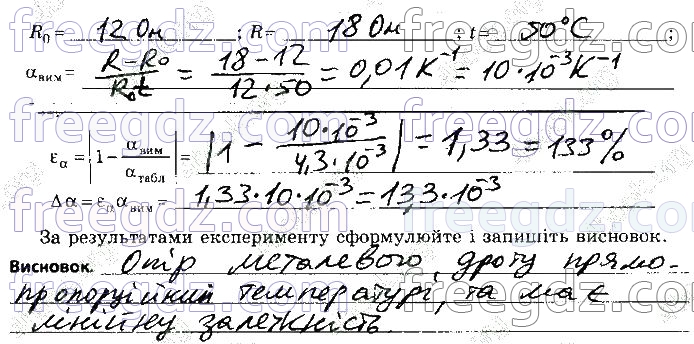 R₀ = 12 Ом ; R = 18 Ом ; t = 50°C ;
α вим = (R – R₀)/(R₀t) = (18 – 12)/(12 · 50) = 0,01 К⁻¹ = 10 · 10⁻³ К⁻¹
ε α = |1 – α вим/α табл| = |1 – (10 · 10⁻³)/(4,3 · 10⁻³)| = 1,33 = 133%
Δα = ε α α вим = 1,33 · 10 · 10⁻³ = 13,3 · 10⁻³
За результатами експерименту сформулюйте і запишіть висновок.
Висновок. Опір металевого дроту прямо-
пропорційний температурі, та має
лінійну залежність.
freegdz.com